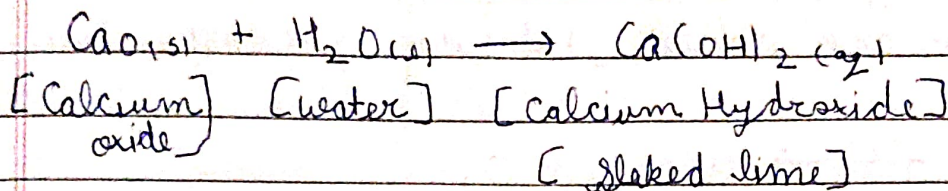 CaO(s) + H₂O(l) ⟶ Ca(OH)₂(aq)
[Calcium oxide] [water] [Calcium Hydroxide]
[slaked lime]